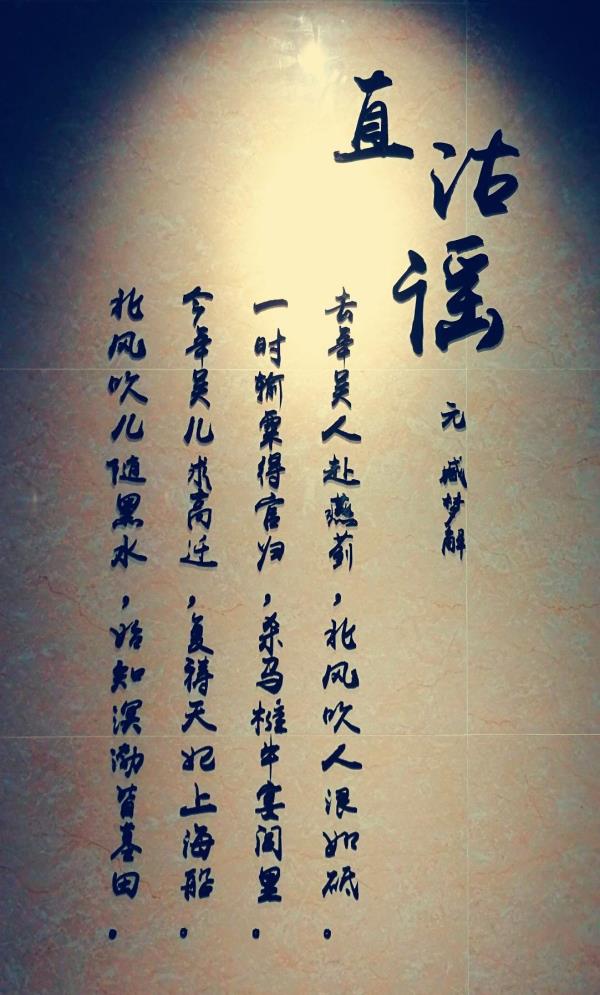 直沽谣
元 臧梦解
去年吴人赴燕蓟，北风吹人浪如砥。
一时输粟得官归，杀马椎牛宴闾里。
今年吴儿求高迁，复祷天妃上海船。
北风吹儿随黑水，始知溟渤皆墓田。